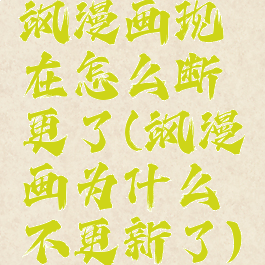 飒漫画现
在怎么断
更了(飒漫
画为什么
不更新了)